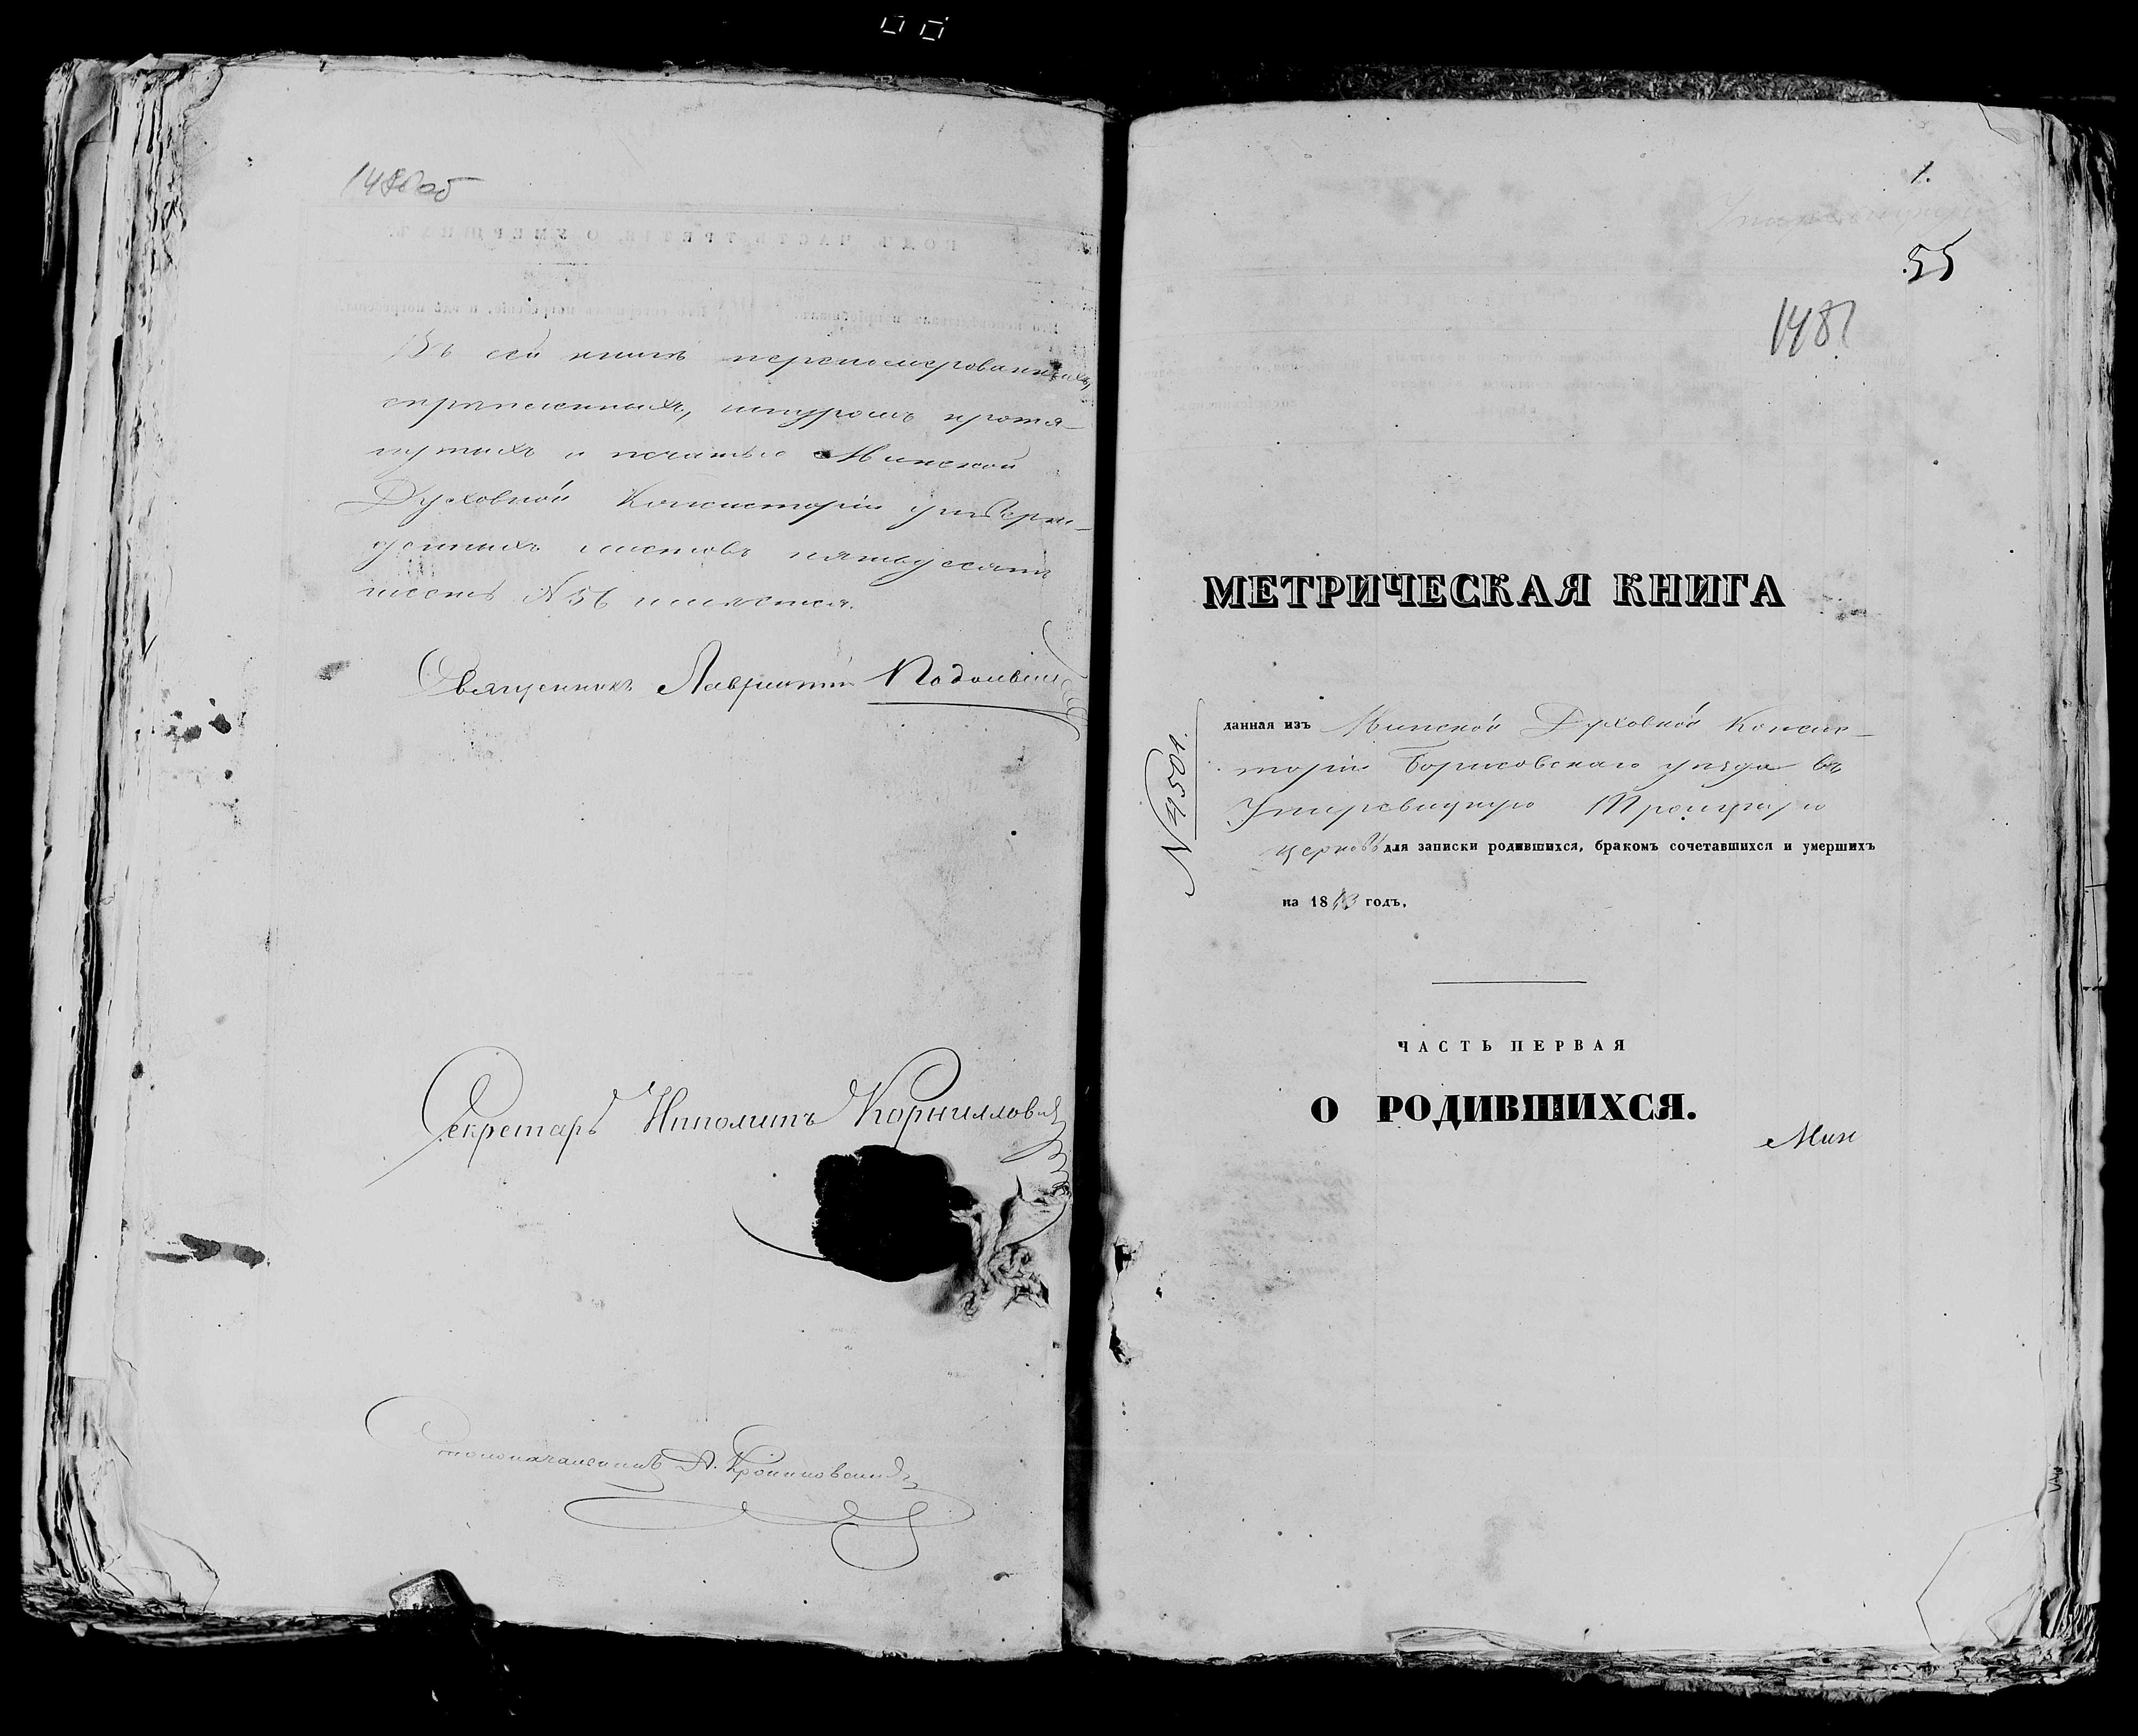 1480об
Въ сей книгѣ перенумерованныхъ,
скрѣпленныхъ, шнуромъ протя-
нутыхъ и печатью Минской
Духовной Консисторіи утверж-
денныхъ листовъ пятьдесятъ
шесть №56 имѣется.
Священникъ Лаврентій
Секретарь Ипполитъ
Столоначальникъ
1.
55
1481
МЕТРИЧЕСКАЯ КНИГА
№ 4501.
данная изъ Минской Духовной Консис-
торіи Борисовскаго уѣзда въ
Троицкую
церковь для записки родившихся, бракомъ сочетавшихся и умершихъ
на 18 годъ.
ЧАСТЬ ПЕРВАЯ
О РОДИВШИХСЯ.
Мин